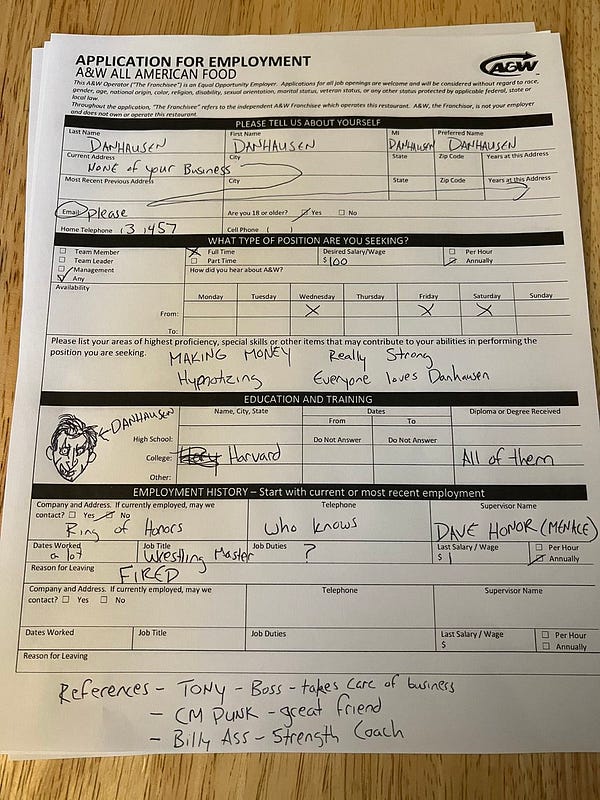 APPLICATION FOR EMPLOYMENT
A&W ALL AMERICAN FOOD
A&W
This A&W Operator ("The Franchisee") is an Equal Opportunity Employer. Applications for all job openings are welcome and will be considered without regard to race,
gender, age, national origin, color, religion, disability, sexual orientation, marital status, veteran status, or any other status protected by applicable federal, state or
local law.
Throughout the application, "The Franchisee" refers to the independent A&W Franchisee which operates this restaurant. A&W, the Franchisor, is not your employer
and does not own or operate this restaurant.
PLEASE TELL US ABOUT YOURSELF
Last Name First Name MI Preferred Name
DANHAUSEN DANHAUSEN DANHAUSEN DANHAUSEN
Current Address City State Zip Code Years at this Address
NONE of your Business
Most Recent Previous Address City State Zip Code Years at this Address
Email: please Are you 18 or older? Yes No
Home Telephone (3)457 Cell Phone ( )
WHAT TYPE OF POSITION ARE YOU SEEKING?
Team Member Full Time Desired Salary/Wage Per Hour
Team Leader Part Time $100 Annually
Management How did you hear about A&W?
Any
Availability Monday Tuesday Wednesday Thursday Friday Saturday Sunday
From: X X X
To:
Please list your areas of highest proficiency, special skills or other items that may contribute to your abilities in performing the
position you are seeking.
MAKING MONEY Really Strong
Hypnotizing Everyone loves Danhausen
EDUCATION AND TRAINING
Name, City, State Dates Diploma or Degree Received
From To
DANHAUSEN
High School: Do Not Answer Do Not Answer
College: Harvard All of them
Other:
EMPLOYMENT HISTORY – Start with current or most recent employment
Company and Address. If currently employed, may we Telephone Supervisor Name
contact? Yes No
Ring of Honors Who knows DAVE HONOR (MENACE)
Dates Worked Job Title Job Duties Last Salary / Wage Per Hour
a lot Wrestling Master ? $ 1 Annually
Reason for Leaving
FIRED
Company and Address. If currently employed, may we Telephone Supervisor Name
contact? Yes No
Dates Worked Job Title Job Duties Last Salary / Wage Per Hour
$ Annually
Reason for Leaving
References - TONY - Boss - takes care of business
- CM PUNK - great friend
- Billy Ass - Strength Coach